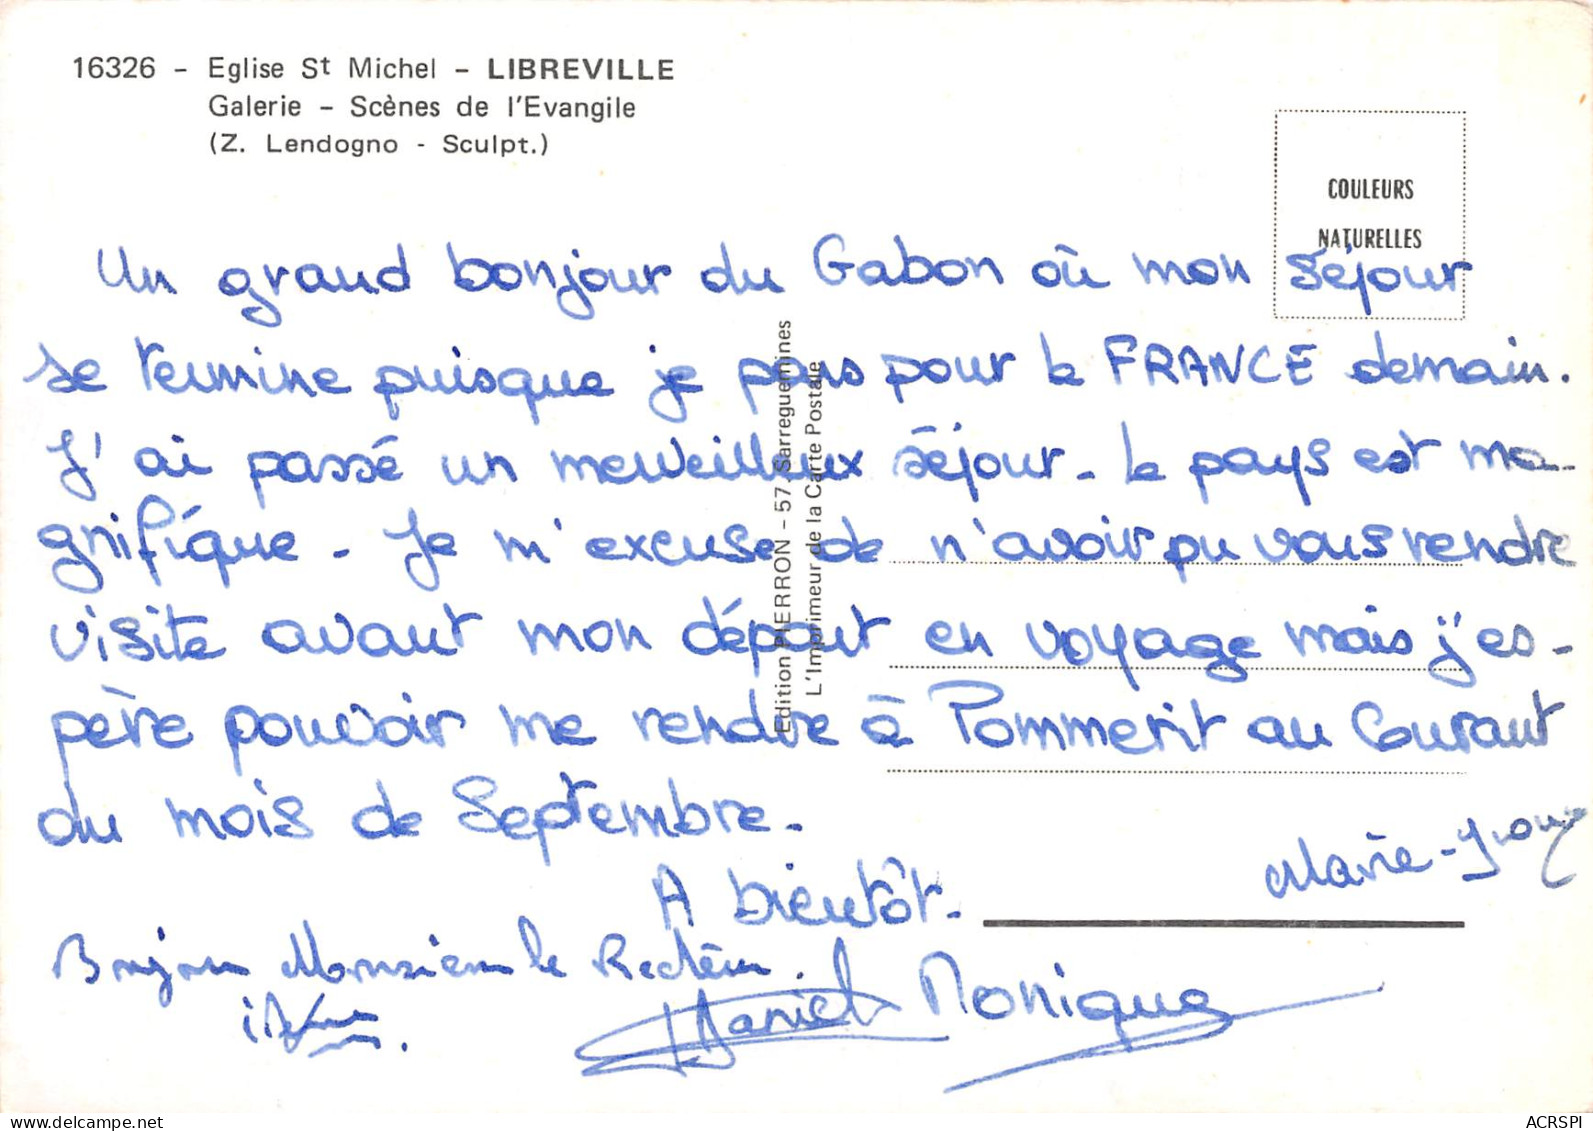 16326 - Eglise St Michel - LIBREVILLE
Galerie - Scènes de l'Evangile
(Z. Lendogno - Sculpt.)
COULEURS
NATURELLES
Un grand bonjour du Gabon où mon séjour
se termine puisque je pars pour la FRANCE demain.
J'ai passé un merveilleux séjour. Le pays est ma-
gnifique. Je m'excuse de n'avoir pu vous rendre
visite avant mon départ en voyage mais j'es-
père pouvoir me rendre à Pommerit au Courant
du mois de Septembre.
A bientôt.
Marie-
Bonjour Monsieur le Recteur.
Daniel Monique
Edition PIERRON - 57 Sarreguemines
L'Imprimeur de la Carte Postale
delcampe.net
ACRSPI